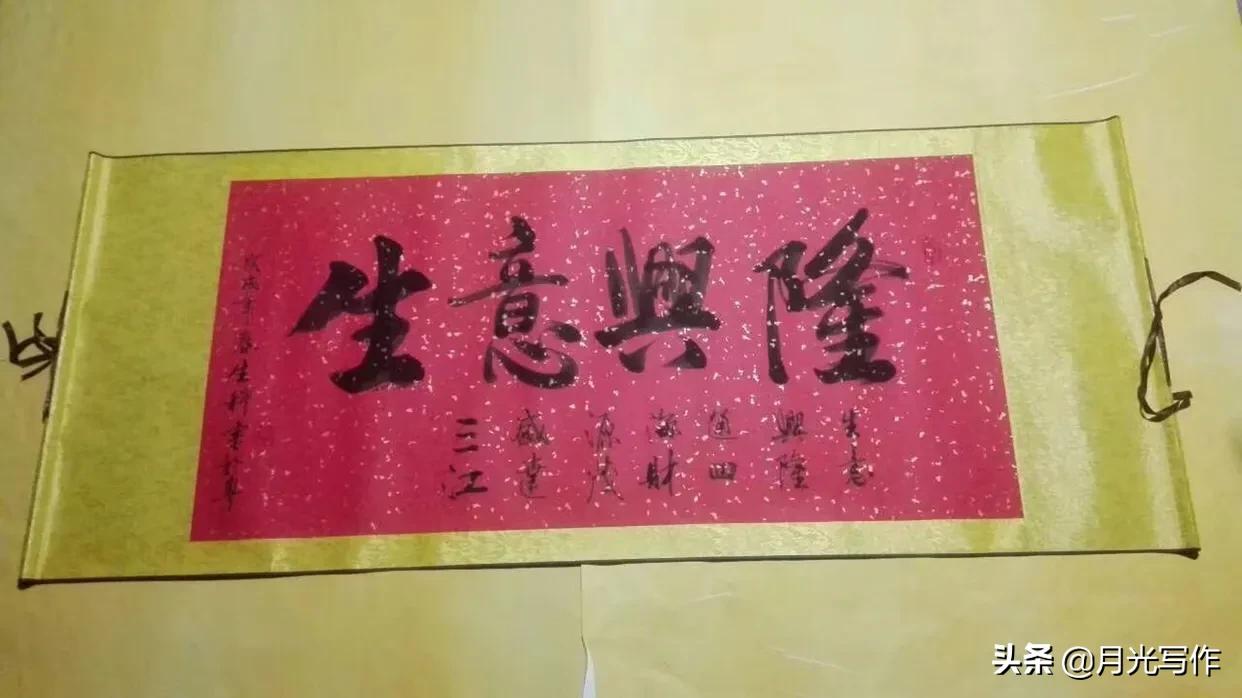 生意興隆
生意
興隆
通四
海財
源茂
盛達
三江
戊戌年春生
头条 @月光写作